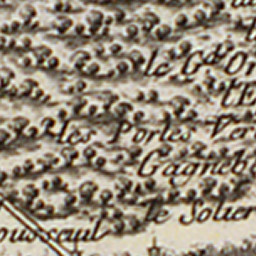 le Gd. Or
les Portes Ver
Gagneb
le Solier
ousseuil